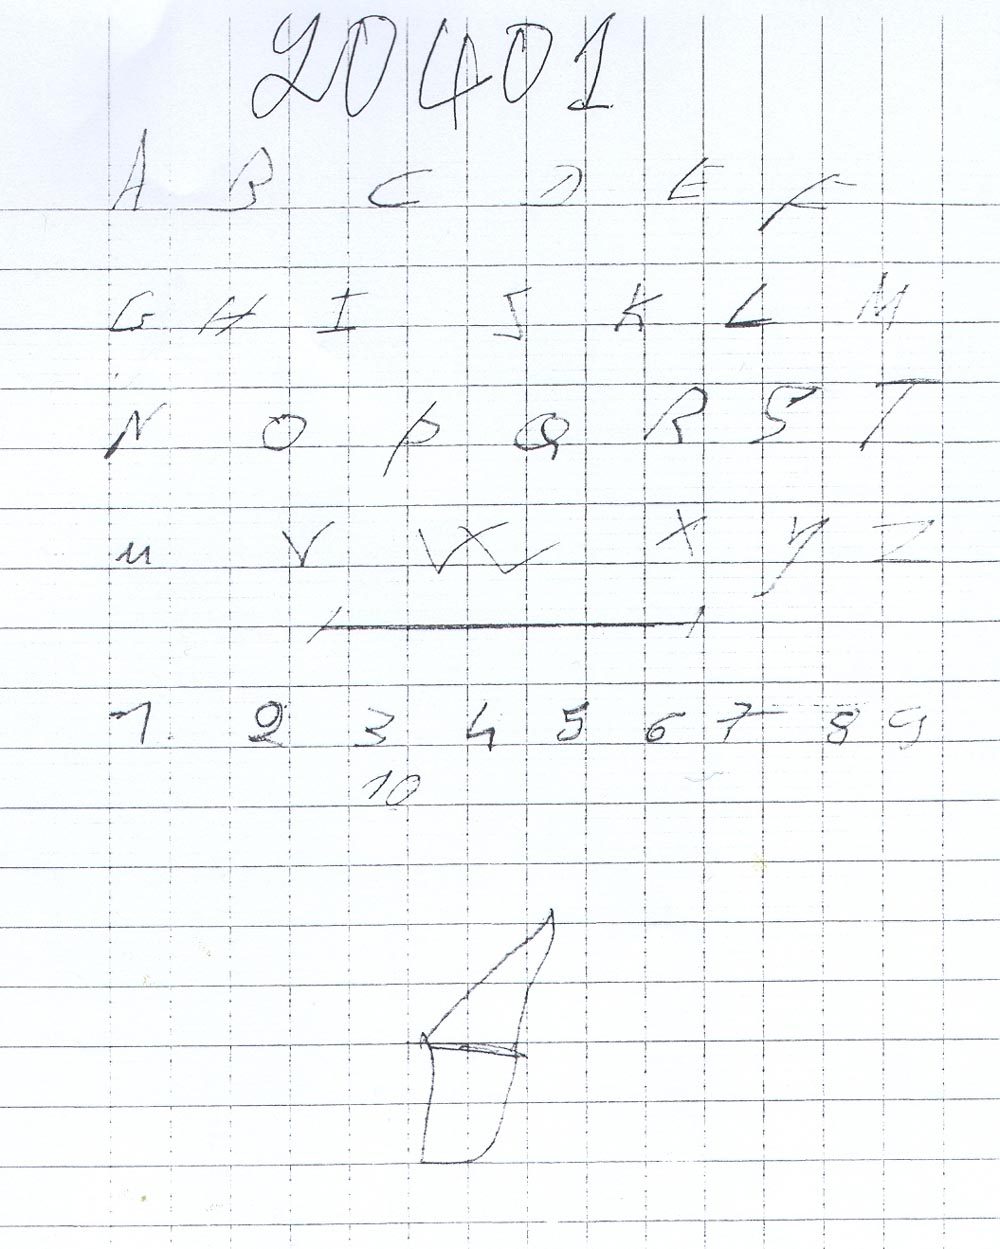 20401
A B C D E F
G H I J K L M
N O P Q R S T
u V W X y Z
1 2 3 4 5 6 7 8 9
10